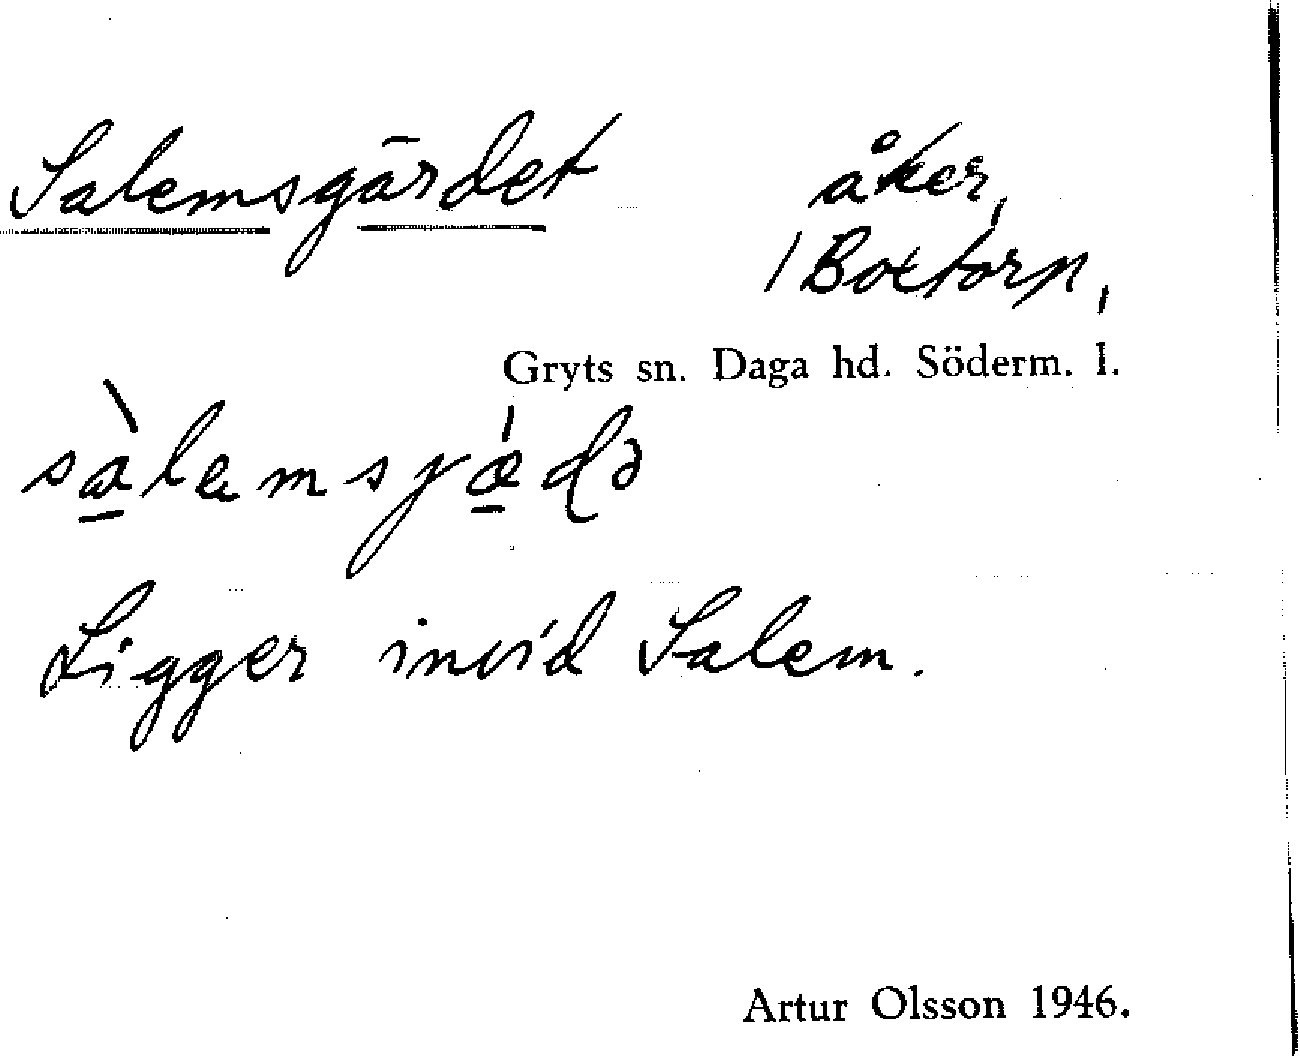 Salemsgärdet åker,
/ Boxtorp,
Gryts sn. Daga hd. Söderm. l.
sàlemsjǽdə
Ligger invid Salem.
Artur Olsson 1946.